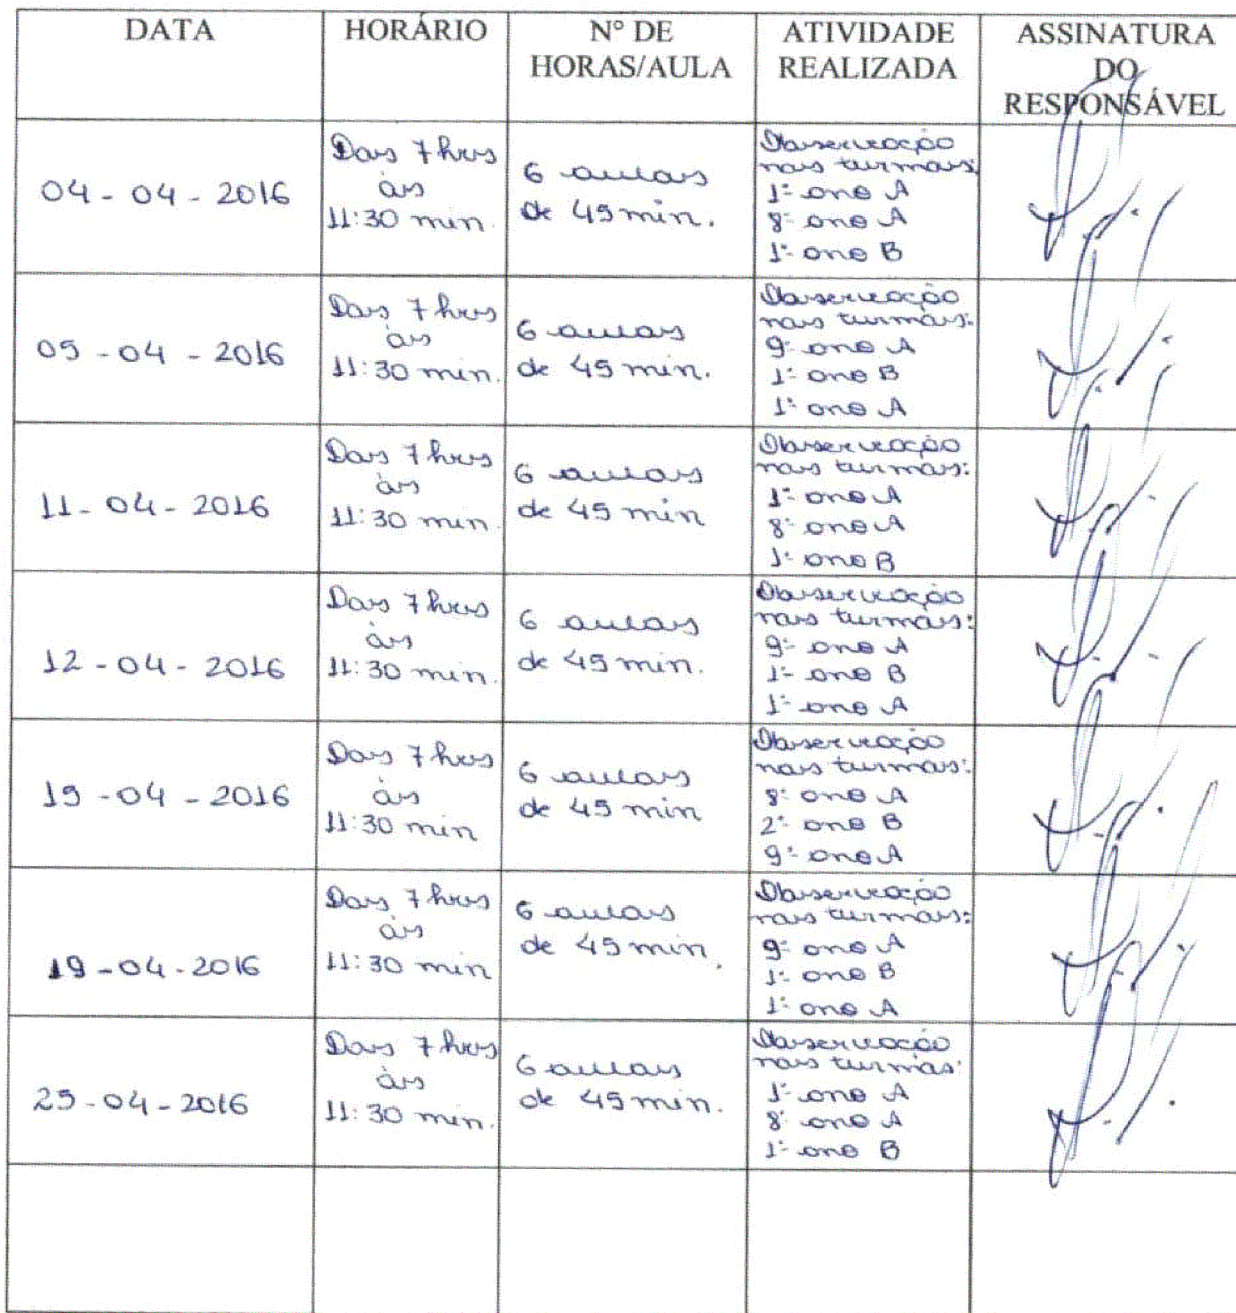 DATA
HORÁRIO
N° DE
HORAS/AULA
ATIVIDADE
REALIZADA
ASSINATURA
DO
RESPONSÁVEL
04 - 04 - 2016
Das 7 hrs
às
11:30 min.
6 aulas
de 45 min.
Observação
nas turmas:
1º ano A
8º ano A
1º ano B
05 - 04 - 2016
Das 7 hrs
às
11:30 min.
6 aulas
de 45 min.
Observação
nas turmas:
9º ano A
1º ano B
1º ano A
11 - 04 - 2016
Das 7 hrs
às
11:30 min.
6 aulas
de 45 min
Observação
nas turmas:
1º ano A
8º ano A
1º ano B
12 - 04 - 2016
Das 7 hrs
às
11:30 min.
6 aulas
de 45 min.
Observação
nas turmas:
9º ano A
1º ano B
1º ano A
15 - 04 - 2016
Das 7 hrs
às
11:30 min
6 aulas
de 45 min
Observação
nas turmas:
8º ano A
2º ano B
9º ano A
19 - 04 - 2016
Das 7 hrs
às
11:30 min
6 aulas
de 45 min.
Observação
nas turmas:
9º ano A
1º ano B
1º ano A
25 - 04 - 2016
Das 7 hrs
às
11:30 min.
6 aulas
de 45 min.
Observação
nas turmas:
1º ano A
8º ano A
1º ano B